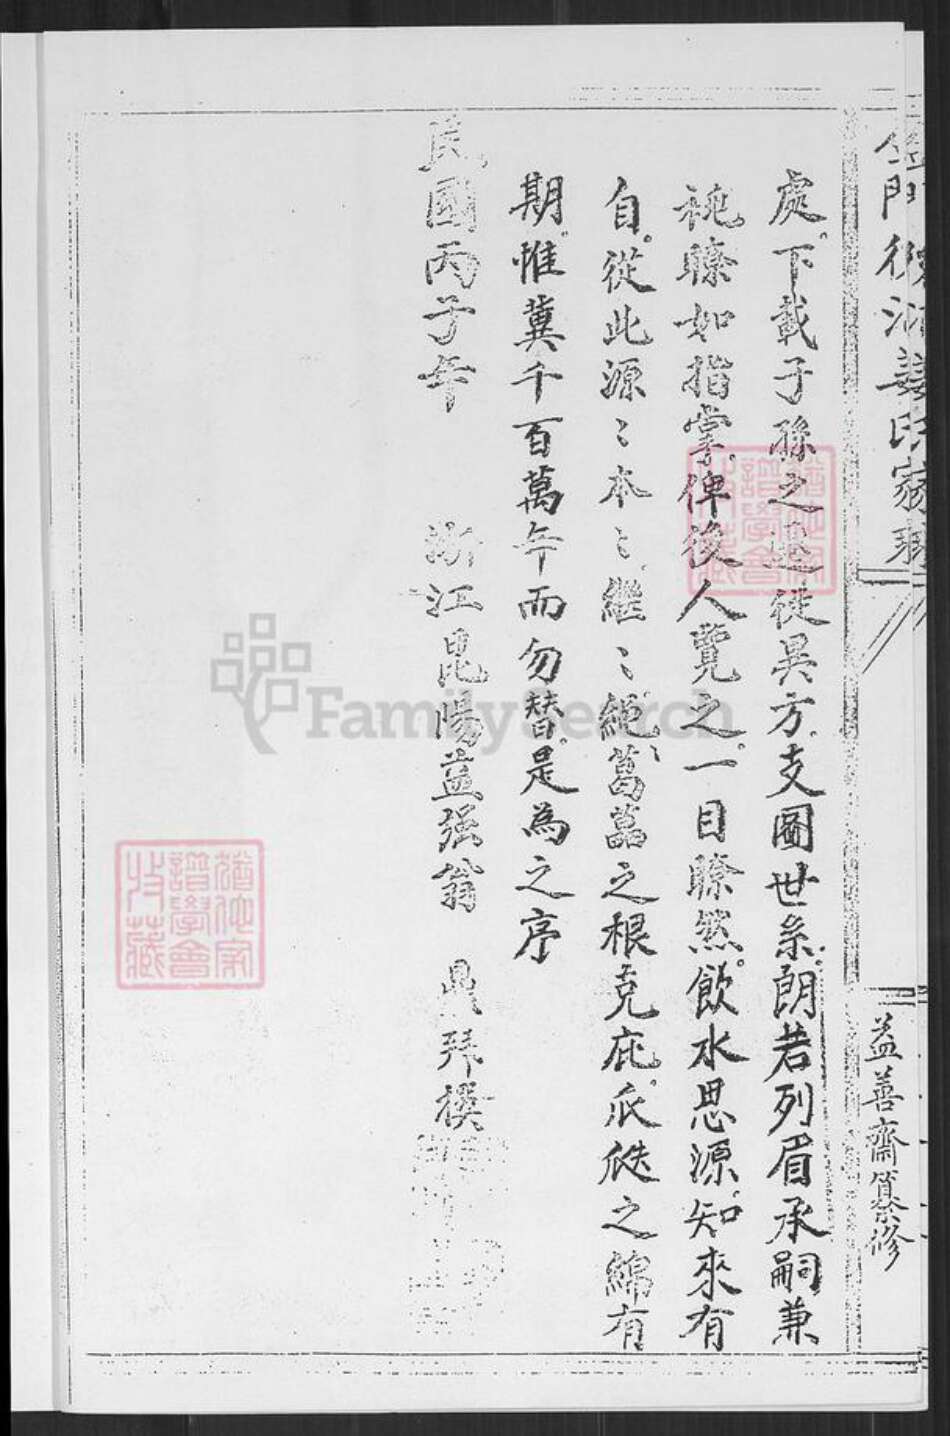 門徐氵姜氏家
益善齋纂修
處。下載子孫之遷徙異方。支圖世系。朗若列眉承嗣兼
祧。瞭如指掌。俾後人覽之。一目瞭然。飲水思源。知來有
自。從此源〻本〻。繼〻繩〻。葛藟之根克庇。瓜瓞之綿有
期。惟冀千百萬年而勿替。是為之序
民國丙子年 浙江昆陽益强翁 鼎拜撰
譜學會 收藏
譜學會 收藏
FamilySearch